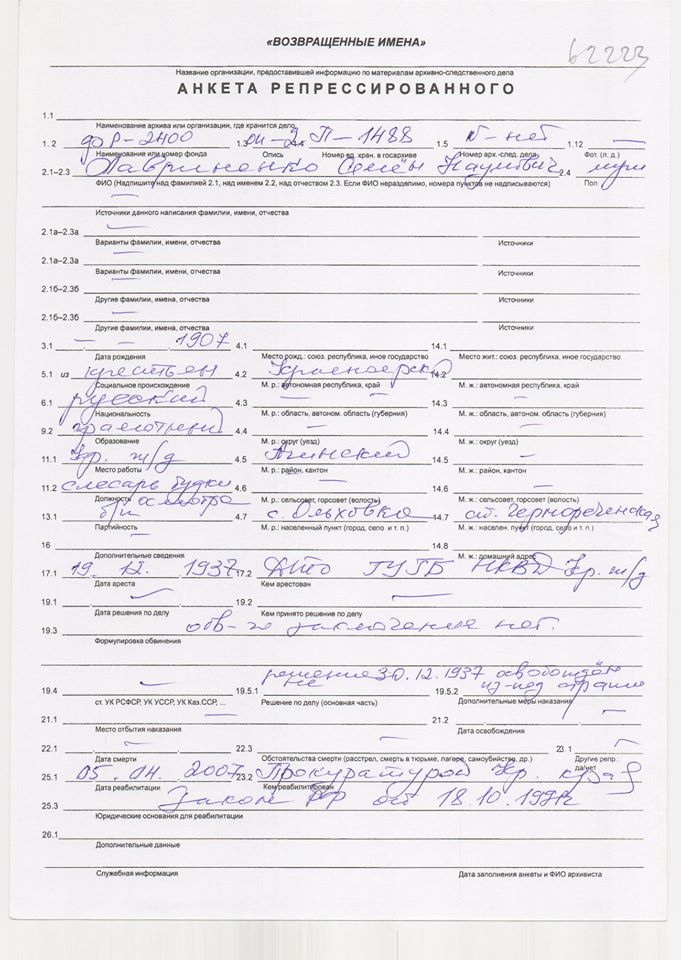 «ВОЗВРАЩЕННЫЕ ИМЕНА»
62223
Название организации, предоставившей информацию по материалам архивно-следственного дела
АНКЕТА РЕПРЕССИРОВАННОГО
1.1
Наименование архива или организации, где хранится дело
1. 2 ф Р-2400 1.3 оп-2 1.4 П-1488 1.5 №-нет 1.12 —
Наименование или номер фонда Опись Номер ед. хран. в госархиве Номер арх.-след. дела Фот. (п. д.)
2.1–2.3 Лавриненко Семён Наумович 2.4 муж
ФИО (Надпишите над фамилией 2.1, над именем 2.2, над отчеством 2.3. Если ФИО неразделимо, номера пунктов не надписываются) Пол
—
Источники данного написания фамилии, имени, отчества
2.1а–2.3а —
Варианты фамилии, имени, отчества Источники
2.1а–2.3а —
Варианты фамилии, имени, отчества Источники
2.1б–2.3б —
Другие фамилии, имена, отчества Источники
2.1б–2.3б —
Другие фамилии, имена, отчества Источники
3.1 — — 1907 4.1 14.1
Дата рождения Место рожд.: союз. республика, иное государство Место жит.: союз. республика, иное государство
5.1 из крестьян 4.2 Красноярский 14.2
Социальное происхождение М. р.: автономная республика, край М. ж.: автономная республика, край
6.1 русский 4.3 — 14.3 —
Национальность М. р.: область, автоном. область (губерния) М. ж.: область, автоном. область (губерния)
9.2 грамотный 4.4 — 14.4 —
Образование М. р.: округ (уезд) М. ж.: округ (уезд)
11.1 Кр. ж/д 4.5 Ачинский 14.5 —
Место работы М. р.: район, кантон М. ж.: район, кантон
11.2 слесарь будки 4.6 — 14.6 —
Должность осмотра М. р.: сельсовет, горсовет (волость) М. ж.: сельсовет, горсовет (волость)
13.1 б/п 4.7 с. Ольховка 14.7 ст. Чернореченская
Партийность М. р.: населенный пункт (город, село и т. п.) М. ж.: населен. пункт (город, село и т. п.)
16 — 14.8
Дополнительные сведения М. ж.: домашний адрес
17.1 19. 12. 1937 17.2 ДТО ГУГБ НКВД Кр. ж/д
Дата ареста Кем арестован
19.1 — 19.2 —
Дата решения по делу Кем принято решение по делу
19.3 обв-го заключения нет.
Формулировка обвинения
решение 30.12.1937 освобождён
19.4 — 19.5.1 19.5.2 из-под стражи
ст. УК РСФСР, УК УССР, УК Каз.ССР, ... Решение по делу (основная часть) Дополнительные меры наказания
21.1 — 21.2 —
Место отбытия наказания Дата освобождения
22.1 — 22.3 — 23. 1 —
Дата смерти Обстоятельства смерти (расстрел, смерть в тюрьме, лагере, самоубийство, др.) Другие репр.: да/нет
25.1 05. 04. 2007 25.2 Прокуратурой Кр. края
Дата реабилитации Кем реабилитирован
25.3 Закон РФ от 18.10.1991г
Юридические основания для реабилитации
26.1
Дополнительные данные
Служебная информация Дата заполнения анкеты и ФИО архивиста